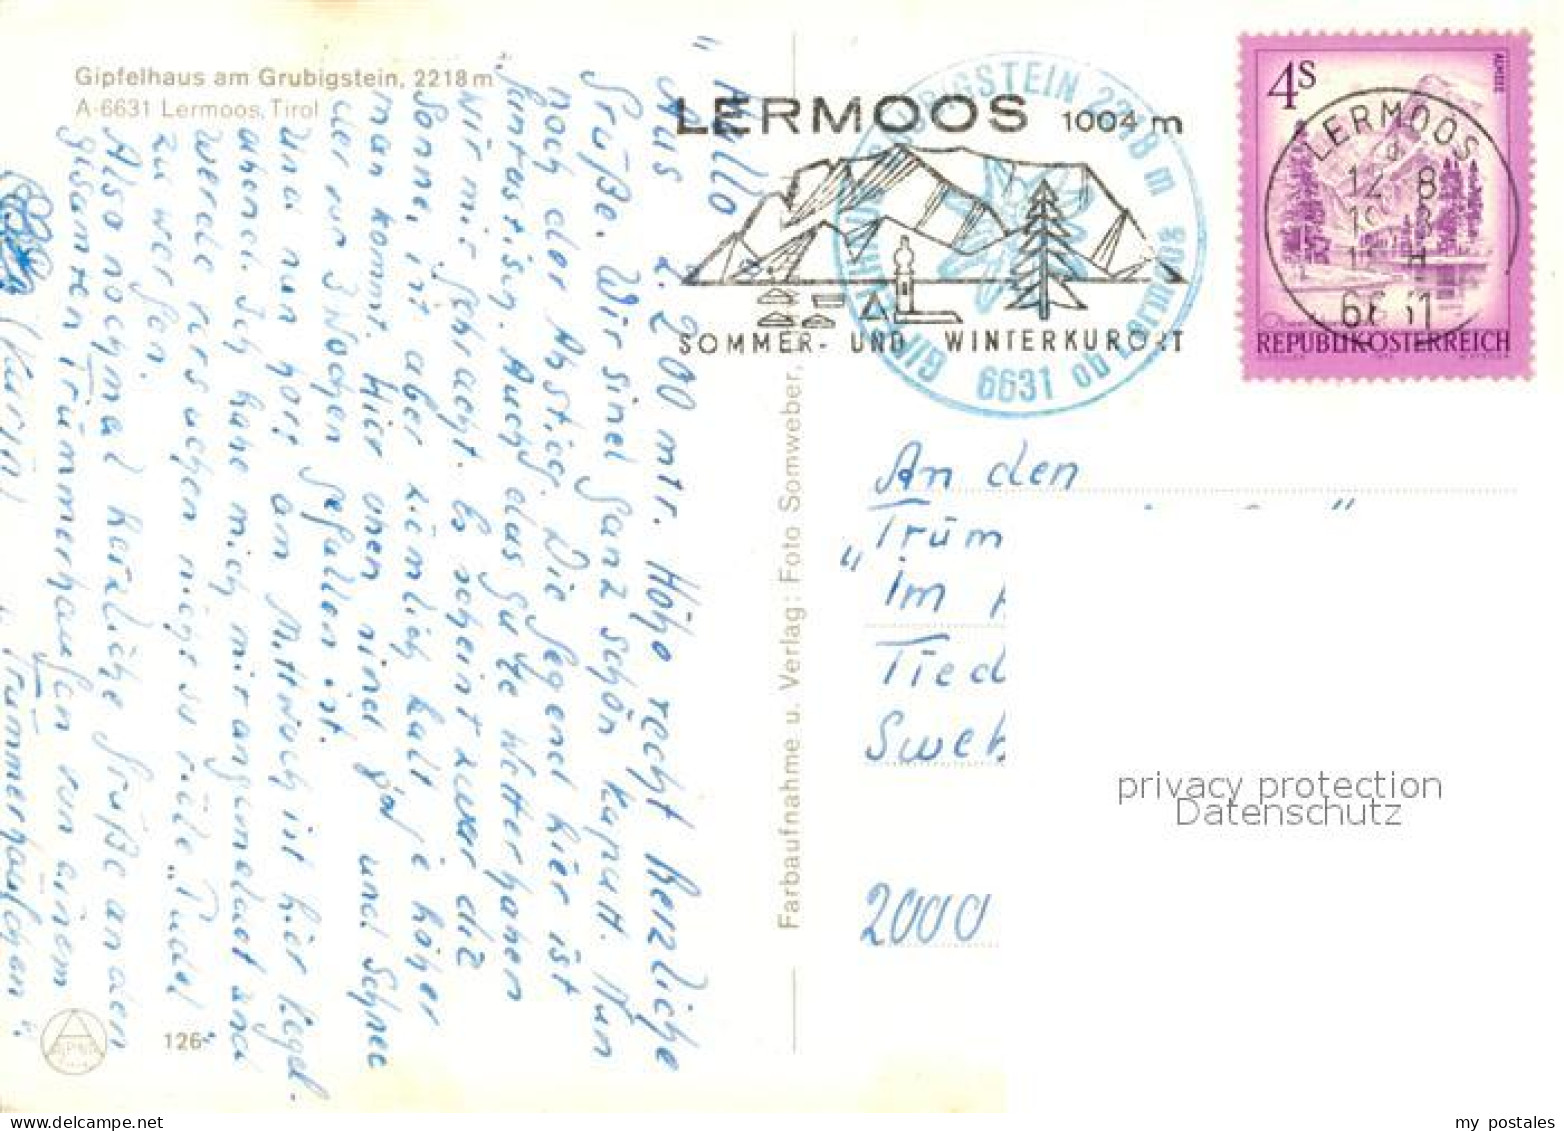 Gipfelhaus am Grubigstein, 2218 m
A-6631 Lermoos, Tirol
"Hallo
Aus 2.200 mtr. Höhe recht herzliche
Grüße. Wir sind ganz schön kaputt. Nun
noch der Abstieg. Die Gegend hier ist
fantastisch. Auch das gute Wetter haben
wir mit gebracht. Es scheint zwar die
Sonne, ist aber ziemlich kalt je höher
man kommt. Hier oben sind ja und Schnee
der vor 3 Wochen gefallen ist.
und nun gors am Mittwoch ist hier Kegel-
abend. Ich habe mich mit angemeldet und
werde versuchen nicht so viele "Pudel"
zu werfen.
Also nochmal herzliche Grüße an den
gesamten Trümmerhaufen von einem
Trümmerhäufchen".
(Kurin)
126
Farbaufnahme u. Verlag: Foto Somweber,
LERMOOS 1004 m
SOMMER- UND WINTERKURORT
GRUBIGSTEIN 2218 m
6631 ob Lermoos
4S
ALMSEE
LERMOOS
12 8
6631
REPUBLIK ÖSTERREICH
An den
"Trüm
im
Tied
Sweb
2000
privacy protection
Datenschutz
my postales